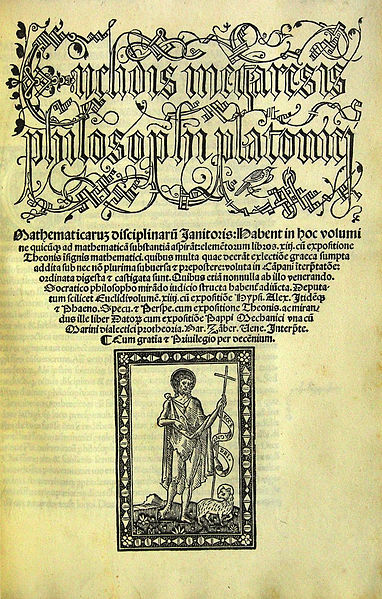 Euclidis megarensis
philosophi platonici
Mathematicaruz disciplinarū Janitoris: Habent in hoc volumi
ne quicūqz ad mathematicā substantiā aspirāt: elemētorum libros. xiij. cū expositione
Theonis isignis mathematici. quibus multa quae deerāt ex lectiōe graeca sumpta
addita sub nec nō plurima subuersa & prepostere: voluta in Cāpani iterpraetatiōe:
ordinata digesta & castigata sunt. Quibus etiā nonnulla ab illo venerando
Socratico philosopho mirādo iudicio structa habent̄ adiūcta. Deputa-
tum scilicet Euclidi volumē. xiiij. cū expositiōe Hypsi. Alex. Itidēqz
& Phaeno. Specu. & Perspe. cum expositione Theonis. ac miran-
dus ille liber Datoꝝ cum expositiōe Pappi Mechanici vna cū
Marini dialectici protheoria. Bar. Zāber. Uene. Interpte.
Cum gratia & Priuilegio per decenium.